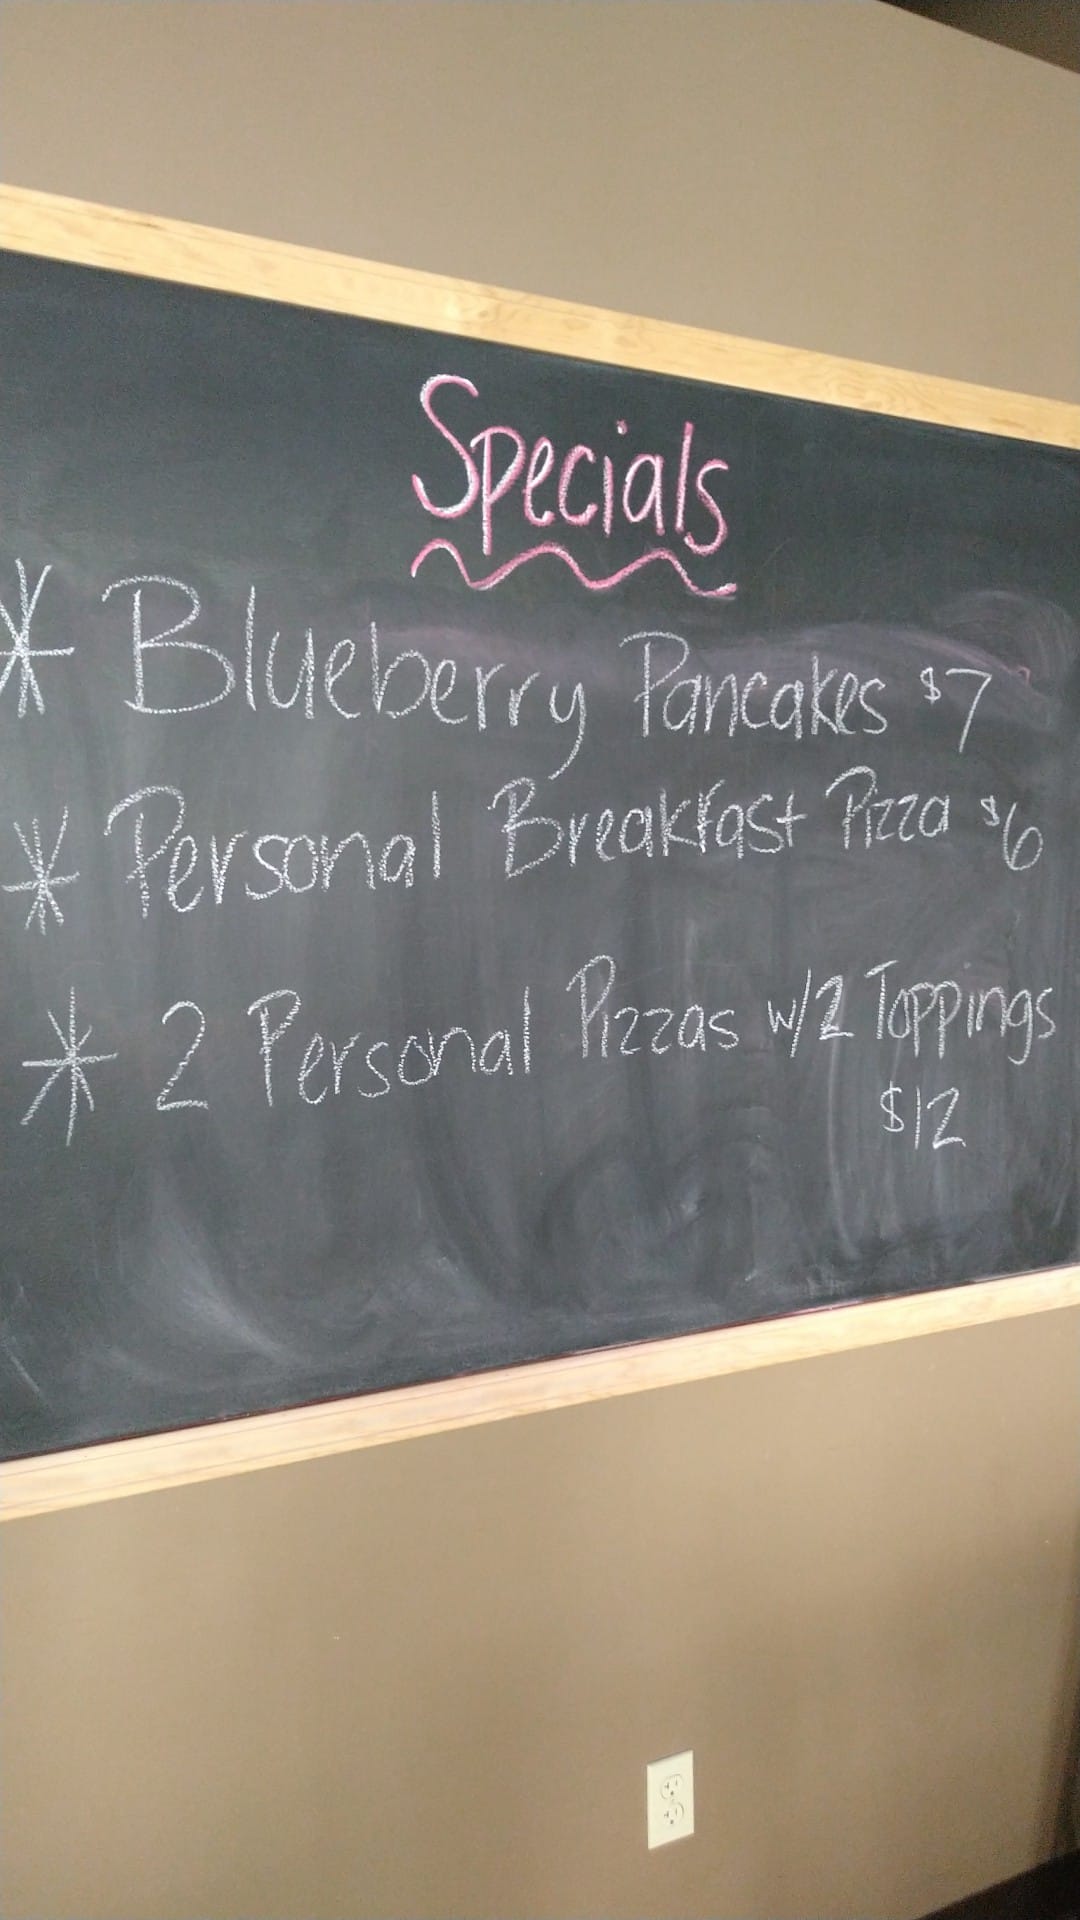 Specials
* Blueberry Pancakes $7
* Personal Breakfast Pizza $6
* 2 Personal Pizzas w/2 Toppings
$12